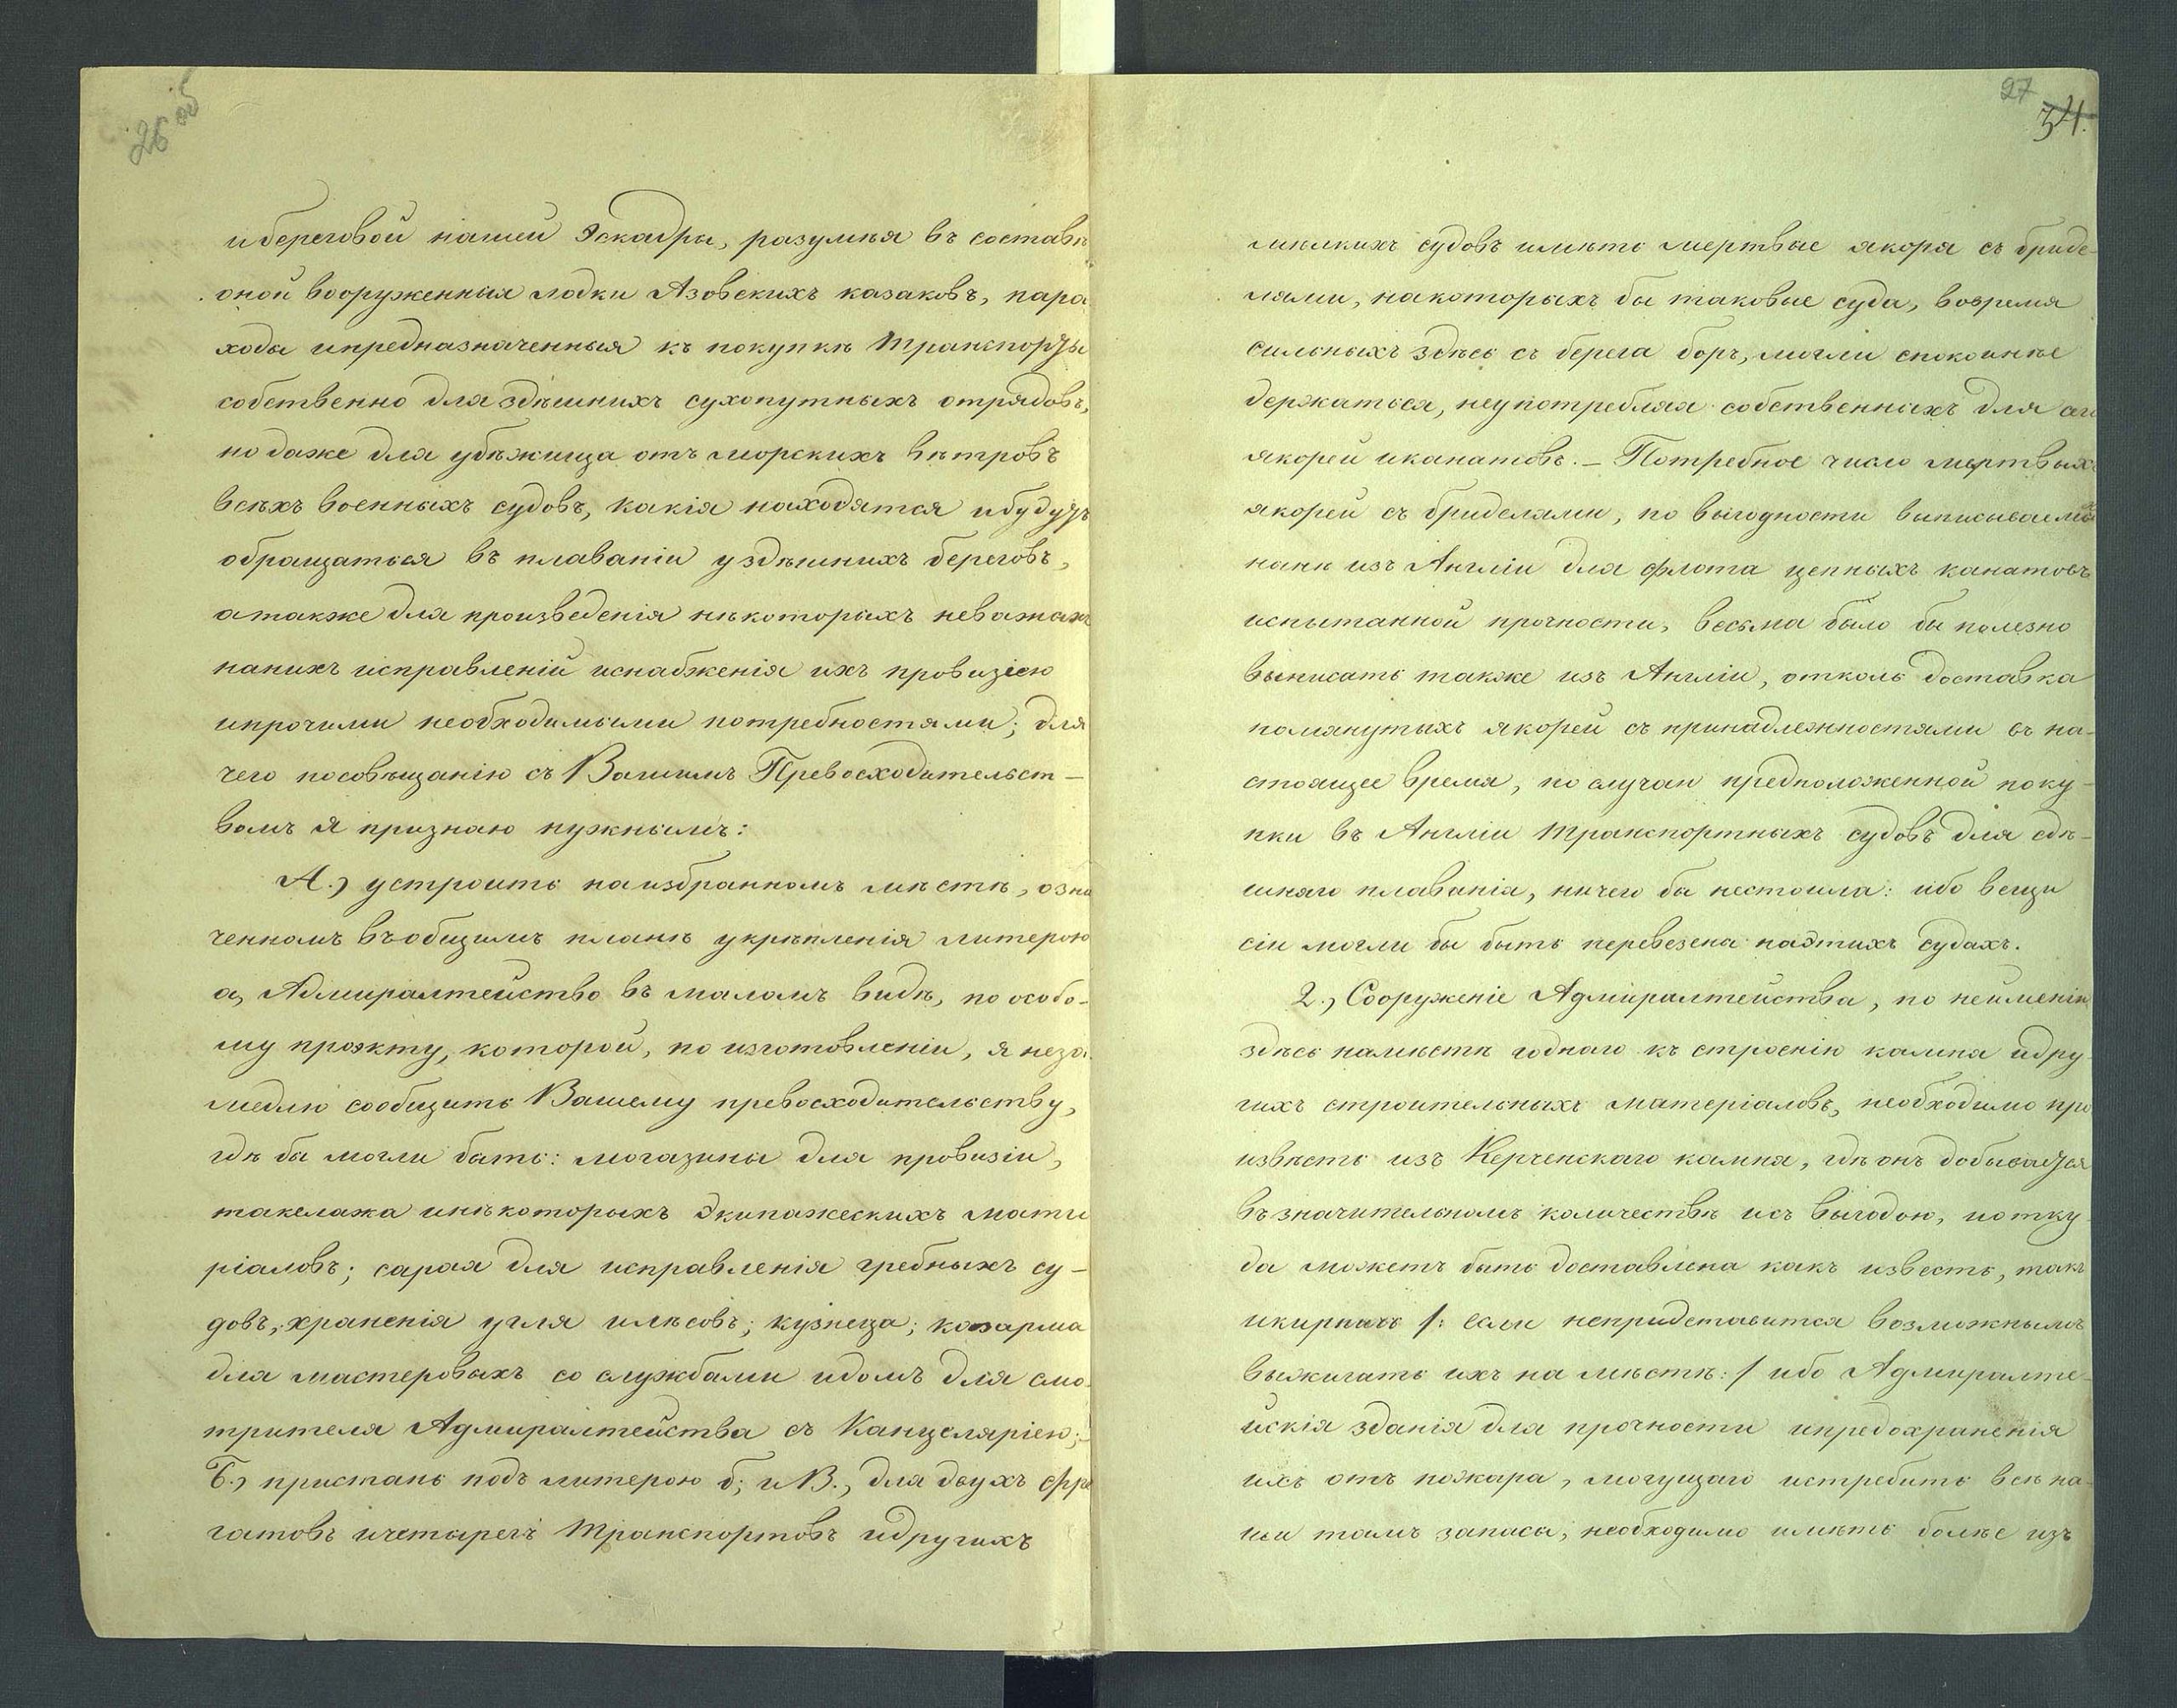 26 об
и береговой нашей Эскадры, разумѣя въ составѣ
оной вооруженныя лодки Азовскихъ казаковъ, паро
ходы и предназначенныя къ покупкѣ транспорты
собственно для здѣшнихъ сухопутныхъ отрядовъ,
но даже для убѣжища отъ морскихъ вѣтровъ
всѣхъ военныхъ судовъ, какія находятся и будутъ
обращаться въ плаваніи у здѣшнихъ береговъ,
а также для произведенія нѣкоторыхъ неважныхъ
на нихъ исправленій и снабженія ихъ провизіею
и прочими необходимыми потребностями; для
чего по совѣщанію съ Вашимъ Превосходительст-
вомъ я признаю нужнымъ:
А.) устроить на избранномъ мѣстѣ, озна
ченномъ въ общемъ планѣ укрѣпленія литерою
а, Адмиралтейство въ маломъ видѣ, по особо-
му проэкту, которой, по изготовленіи, я неза
медлю сообщить Вашему превосходительству,
гдѣ бы могли быть: магазины для провизіи,
такелажа и нѣкоторыхъ экипажескихъ мате
ріаловъ; сарая для исправленія гребныхъ су-
довъ, храненія угля и лѣсовъ; кузнеца; казарма
для мастеровыхъ со службами и домъ для смо-
трителя Адмиралтейства съ Канцеляріею;
Б.) пристань подъ литерою б; и В., для двухъ фре
гатовъ и четырехъ транспортовъ и другихъ
27
34.
мѣлкихъ судовъ имѣть мертвые якоря съ бриде-
лями, на которыхъ бы таковые суда, вовремя
сильныхъ здѣсь съ берега боръ, могли спокойнѣе
держаться, неупотребляя собственныхъ для сего
якорей и канатовъ. – Потребное число мертвыхъ
якорей съ бриделями, по выгодности выписываемыхъ
нынѣ изъ Англіи для флота цепныхъ канатовъ
испытанной прочности, весьма было бы полезно
выписать также изъ Англіи, отколь доставка
помянутыхъ якорей съ принадлежностями въ на-
стоящее время, по случаю предположенной поку-
пки въ Англіи транспортныхъ судовъ для здѣ-
шняго плаванія, ничего бы нестоила: ибо вещи
сіи могли бы быть перевезена на этихъ судахъ.
2.) Сооруженіе Адмиралтейства, по неименію
здѣсь на мѣстѣ годнаго къ строенію камня и дру
гихъ строительныхъ матеріаловъ, необходимо про
извѣсть изъ Керченскаго камня, гдѣ онъ добывается
въ значительномъ количествѣ и съ выгодою, и отку
да можетъ быть доставлена какъ известь, такъ
и кирпичъ /: если непридставится возможнымъ
выжигать ихъ на мѣстѣ: / ибо Адмиралте-
йскія зданія для прочности и предохраненія
ихъ отъ пожара, могущаго истребить всѣ на-
ши тамъ запасы, необходимо имѣть болѣе изъ